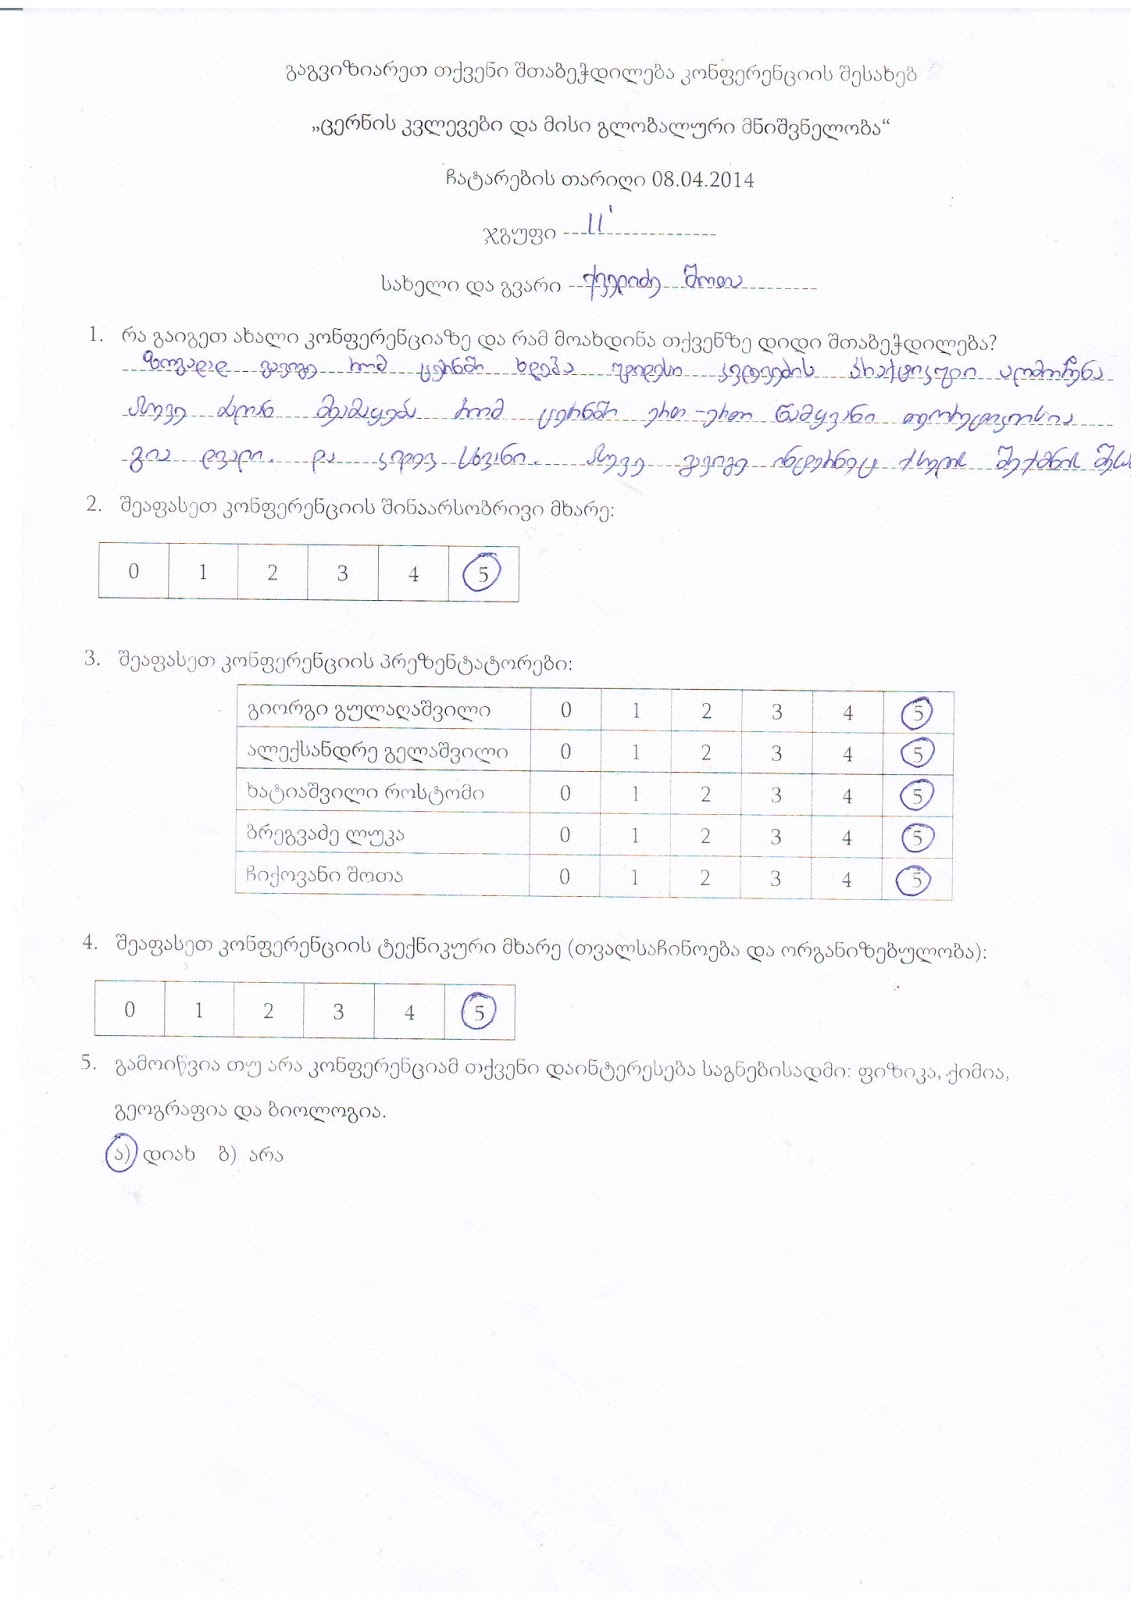 გაგვიზიარეთ თქვენი შთაბეჭდილება კონფერენციის შესახებ
„ცერნის კვლევები და მისი გლობალური მნიშვნელობა“
ჩატარების თარიღი 08.04.2014
ჯგუფი 11'
სახელი და გვარი შოთა
1. რა გაიგეთ ახალი კონფერენციაზე და რამ მოახდინა თქვენზე დიდი შთაბეჭდილება?
ზოგადად გავიგე რომ ცერნში ხდება უდიდესი კვლევების პრაქტიკული აღმოჩენა
ასევე ძალიან მეამაყება რომ ცერნში ერთ-ერთი წამყვანი თეორეტიკოსია
გია დვალი. და კიდევ სხვანი. ასევე გავიგე ინტერნეტ ქსელის შექმნის შესახ
2. შეაფასეთ კონფერენციის შინაარსობრივი მხარე:
0 1 2 3 4 5
3. შეაფასეთ კონფერენციის პრეზენტატორები:
გიორგი გულაღაშვილი 0 1 2 3 4 5
ალექსანდრე გელაშვილი 0 1 2 3 4 5
ხატიაშვილი როსტომი 0 1 2 3 4 5
ბრეგვაძე ლუკა 0 1 2 3 4 5
ჩიქოვანი შოთა 0 1 2 3 4 5
4. შეაფასეთ კონფერენციის ტექნიკური მხარე (თვალსაჩინოება და ორგანიზებულობა):
0 1 2 3 4 5
5. გამოიწვია თუ არა კონფერენციამ თქვენი დაინტერესება საგნებისადმი: ფიზიკა, ქიმია,
გეოგრაფია და ბიოლოგია.
ა) დიახ ბ) არა